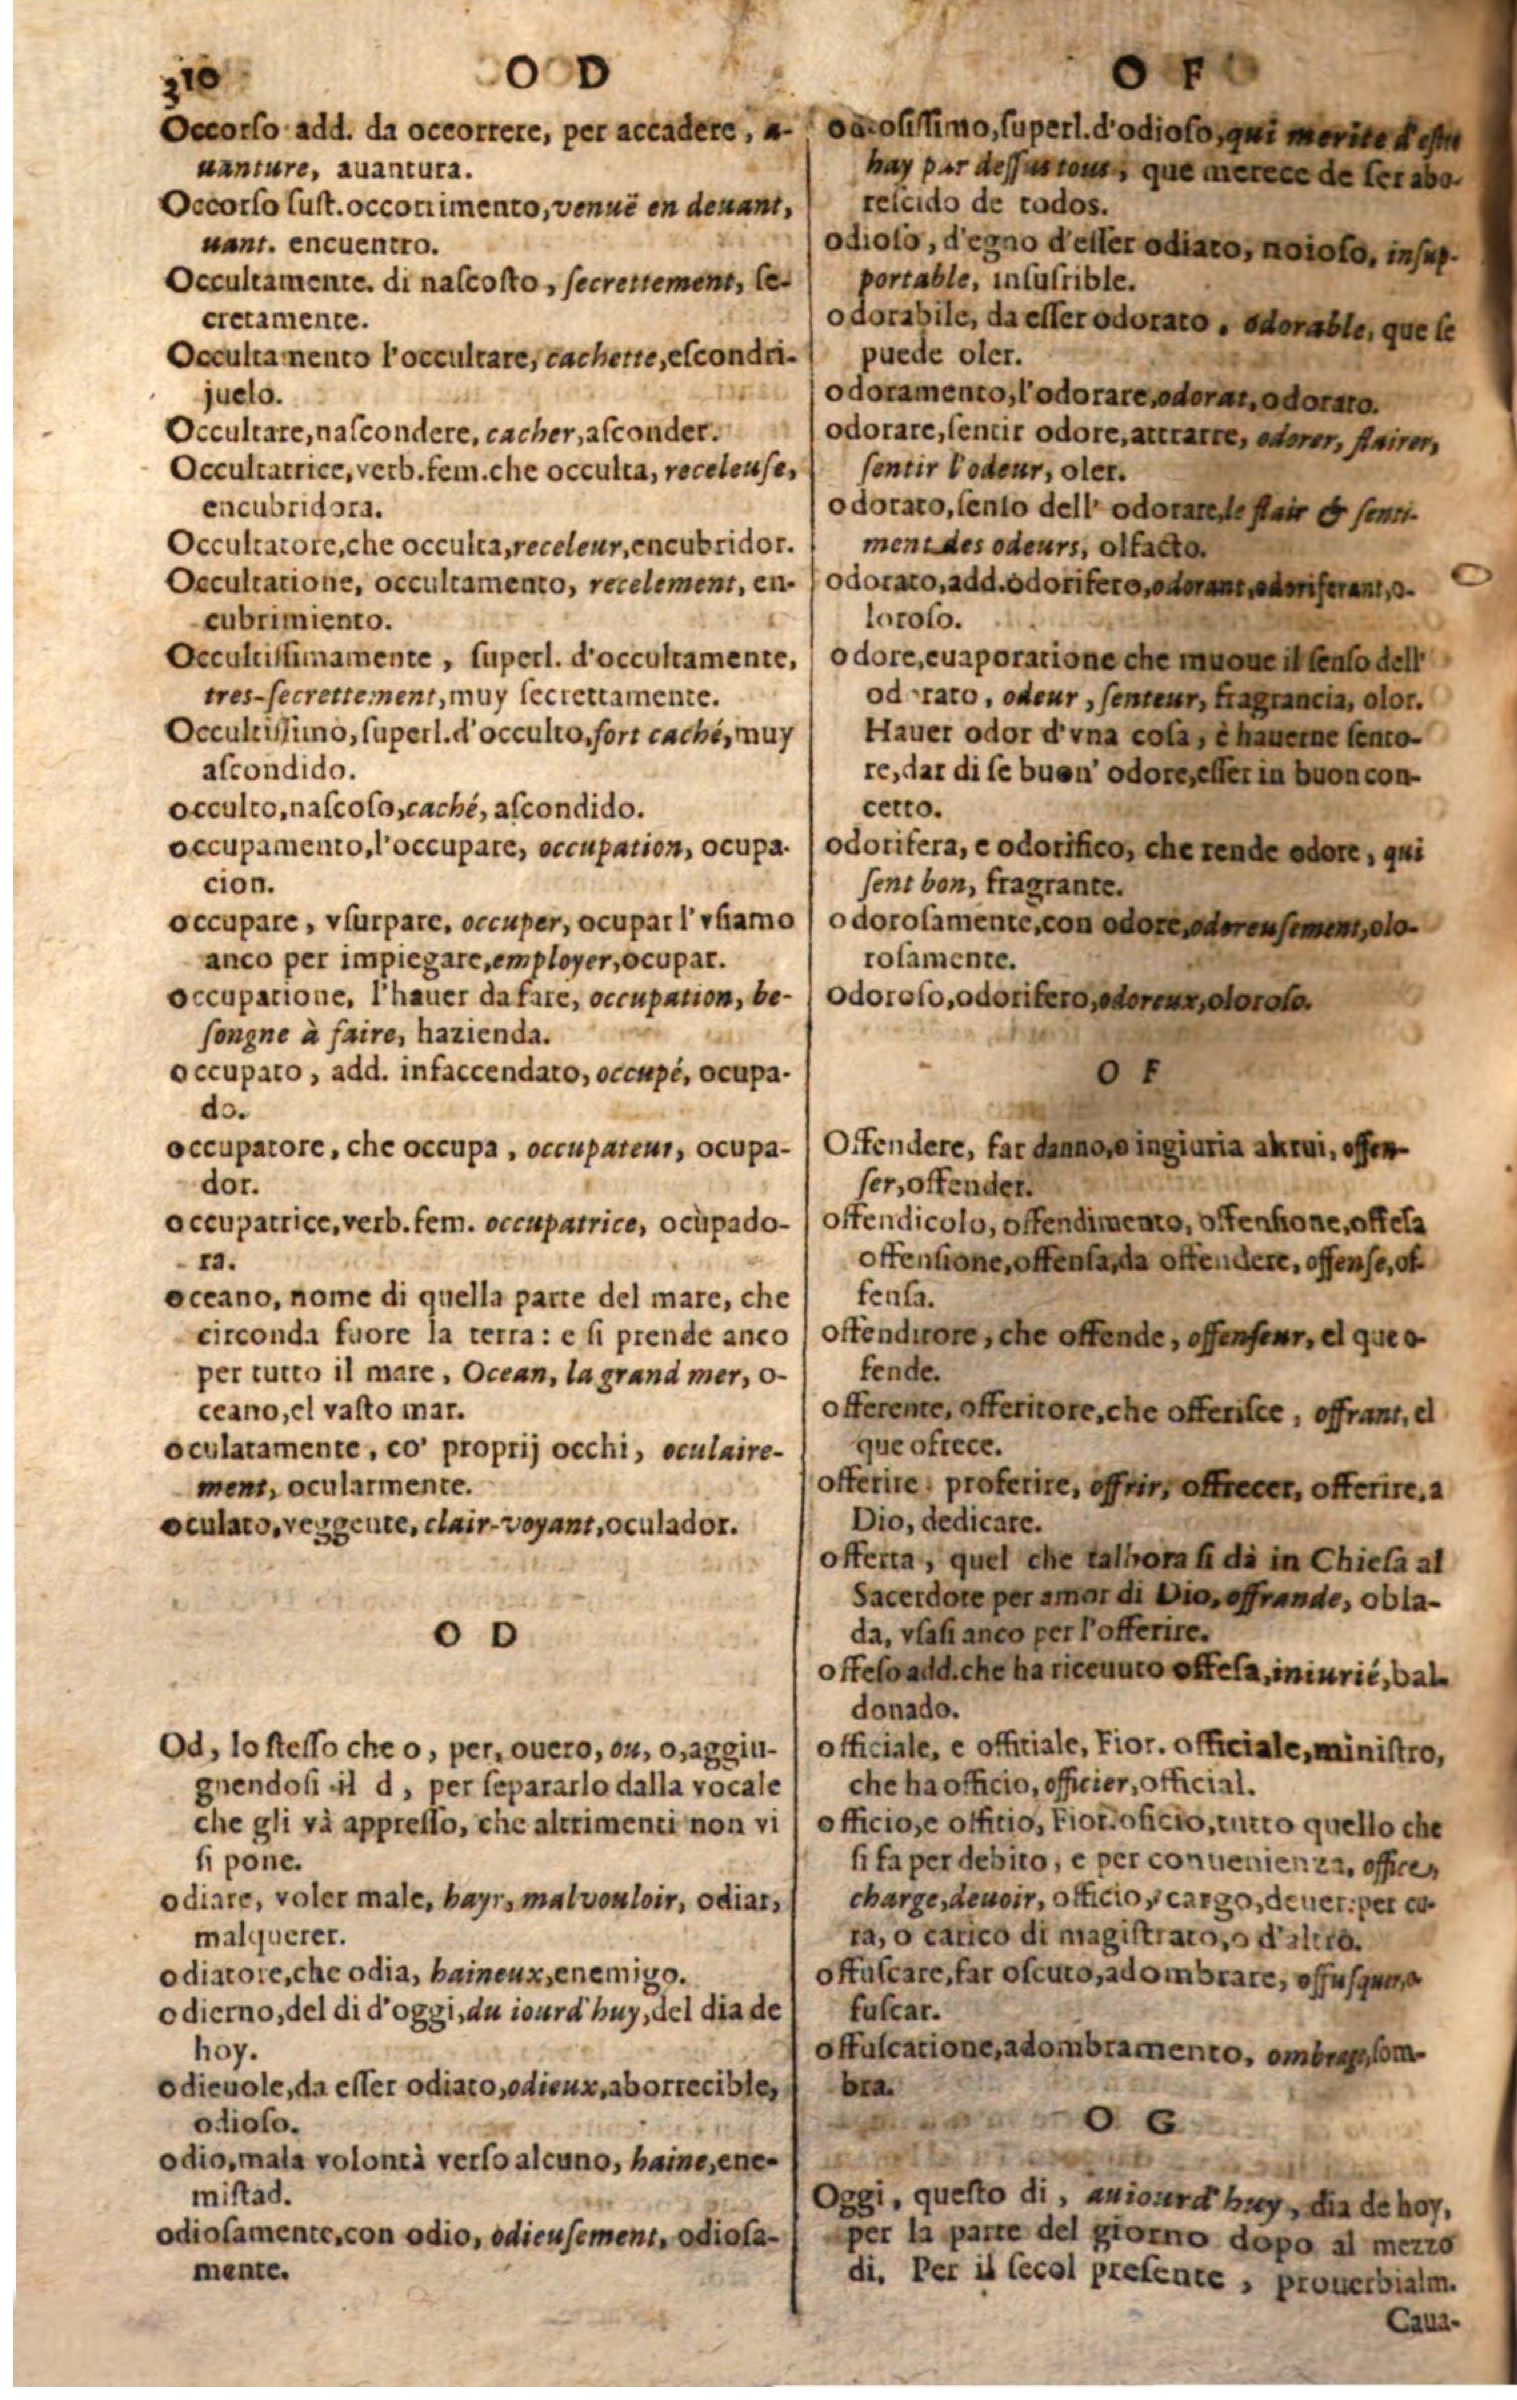 310
O D
Occorſo add. da occorrere, per accadere, a-
uanture, auantura.
Occorſo ſuſt. occorrimento, venuë en deuant,
uant. encuentro.
Occultamente. di naſcoſto, ſecrettement, ſe-
cretamente.
Occultamento l'occultare, cachette, eſcondri-
juelo.
Occultare, naſcondere, cacher, aſconder.
Occultatrice, verb. fem. che occulta, receleuſe,
encubridora.
Occultatore, che occulta, receleur, encubridor.
Occultatione, occultamento, recelement, en-
cubrimiento.
Occultiſſimamente, ſuperl. d'occultamente,
tres-ſecrettement, muy ſecrettamente.
Occultiſſimo, ſuperl. d'occulto, fort caché, muy
aſcondido.
occulto, naſcoſo, caché, aſcondido.
occupamento, l'occupare, occupation, ocupa-
cion.
occupare, vſurpare, occuper, ocupar l'vſiamo
anco per impiegare, employer, ocupar.
occupatione, l'hauer da fare, occupation, be-
ſongne à faire, hazienda.
occupato, add. infaccendato, occupé, ocupa-
do.
occupatore, che occupa, occupateur, ocupa-
dor.
occupatrice, verb. fem. occupatrice, ocùpado-
ra.
oceano, nome di quella parte del mare, che
circonda fuore la terra: e ſi prende anco
per tutto il mare, Ocean, la grand mer, o-
ceano, el vaſto mar.
oculatamente, co' proprij occhi, oculaire-
ment, ocularmente.
oculato, veggente, clair-voyant, oculador.
O D
Od, lo ſteſſo che o, per, ouero, ou, o, aggiu-
gnendoſi il d, per ſepararlo dalla vocale
che gli và appreſſo, che altrimenti non vi
ſi pone.
odiare, voler male, hayr, mal vouloir, odiar,
malquerer.
odiatore, che odia, haineux, enemigo.
odierno, del di d'oggi, du iourd'huy, del dia de
hoy.
odieuole, da eſſer odiato, odieux, aborrecible,
odioſo.
odio, mala volontà verſo alcuno, haine, ene-
miſtad.
odioſamente, con odio, odieuſement, odioſa-
mente.
O F
odioſiſſimo, ſuperl. d'odioſo, qui merite d'eſtre
hay par deſſus tous, que merece de ſer abo-
reſcido de todos.
odioſo, d'egno d'eſſer odiato, noioſo, inſup-
portable, inſufrible.
odorabile, da eſſer odorato, odorable, que ſe
puede oler.
odoramento, l'odorare, odorat, odorato.
odorare, ſentir odore, attrarre, odorer, flairer,
ſentir l'odeur, oler.
odorato, ſenſo dell' odorare, le flair & ſenti-
ment des odeurs, olfacto.
odorato, add. odorifero, odorant, odoriferant, o-
loroſo.
odore, euaporatione che muoue il ſenſo dell'
odorato, odeur, ſenteur, fragrancia, olor.
Hauer odor d'vna coſa, è hauerne ſento-
re, dar di ſe buon' odore, eſſer in buon con-
cetto.
odorifera, e odorifico, che rende odore, qui
ſent bon, fragrante.
odoroſamente, con odore, odoreuſement, olo-
roſamente.
odoroſo, odorifero, odoreux, oloroſo.
O F
Offendere, far danno, o ingiuria altrui, offen-
ſer, offender.
offendicolo, offendimento, offenſione, offeſa
offenſione, offenſa, da offendere, offenſe, of-
fenſa.
offenditore, che offende, offenſeur, el que o-
fende.
offerente, offeritore, che offeriſce, offrant, el
que ofrece.
offerire, proferire, offrir, offrecer, offerire, a
Dio, dedicare.
offerta, quel che talhora ſi dà in Chieſa al
Sacerdote per amor di Dio, offrande, obla-
da, vſaſi anco per l'offerire.
offeſo add. che ha riceuuto offeſa, iniurié, bal-
donado.
officiale, e offitiale, Fior. officiale, miniſtro,
che ha officio, officier, official.
officio, e offitio, Fior. oficio, tutto quello che
ſi fa per debito, e per conuenienza, office,
charge, deuoir, officio, cargo, deuer: per cu-
ra, o carico di magiſtrato, o d'altro.
offuſcare, far oſcuro, adombrare, offuſquer, o
fuſcar.
offuſcatione, adombramento, ombrage, ſom-
bra.
O G
Oggi, queſto di, auiourd'huy, dia de hoy,
per la parte del giorno dopo al mezzo
di. Per il ſecol preſente, prouerbialm.
Caua-